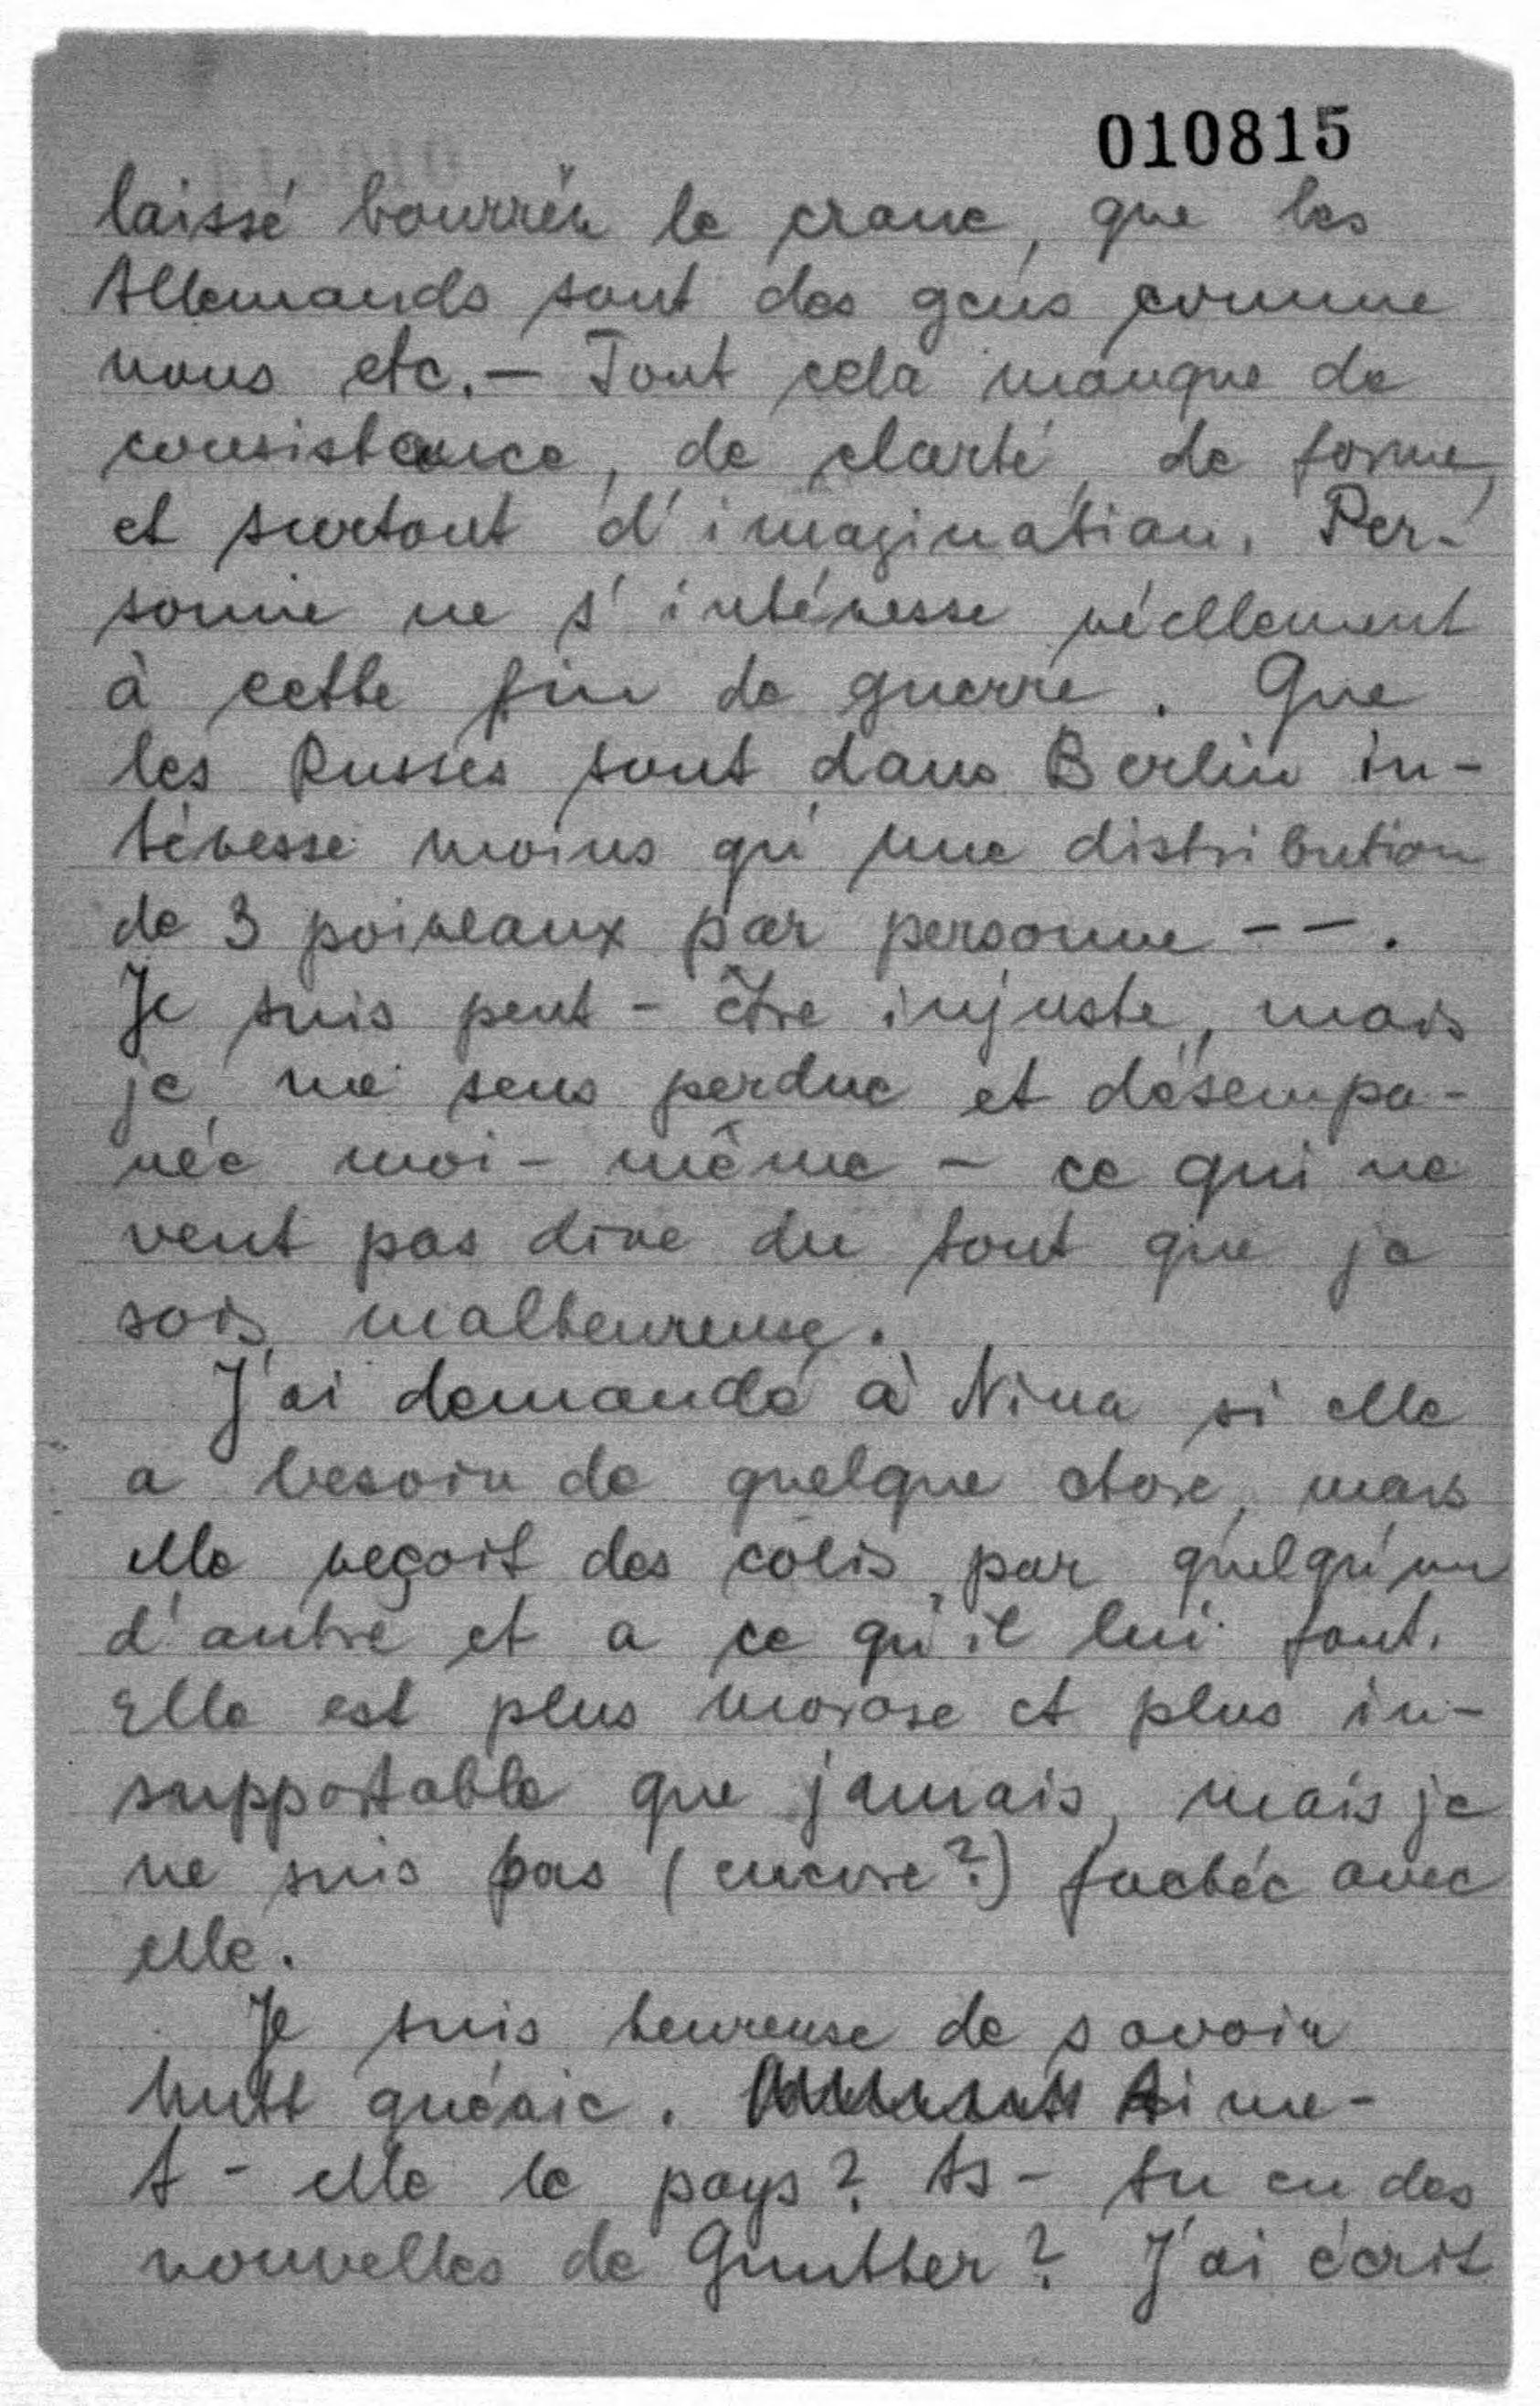 010815
laissé bourrer le crane, que les
Allemands sont des gens comme
nous etc. — Tout cela manque de
consistence, de clarté, de forme,
et surtout d'imagination. Per-
sonne ne s'intéresse réellement
à cette fin de guerre. Que
les Russes sont dans Berlin in-
téresse moins qu'une distribution
de 3 poireaux par personne --.
Je suis peut-être injuste, mais
je me sens perdue et désempa-
rée moi-même - ce qui ne
veut pas dire du tout que je
sois malheureuse.
J'ai demandé à Nina si elle
a besoin de quelque chose, mais
elle reçoit des colis par quelqu'un
d'autre et a ce qu'il lui faut.
Elle est plus morose et plus in-
supportable que jamais, mais je
ne suis pas (encore?) fachée avec
elle.
Je suis heureuse de savoir
guérie. Aime-
t-elle le pays? As-tu eu des
nouvelles de Gunther? J'ai écrit